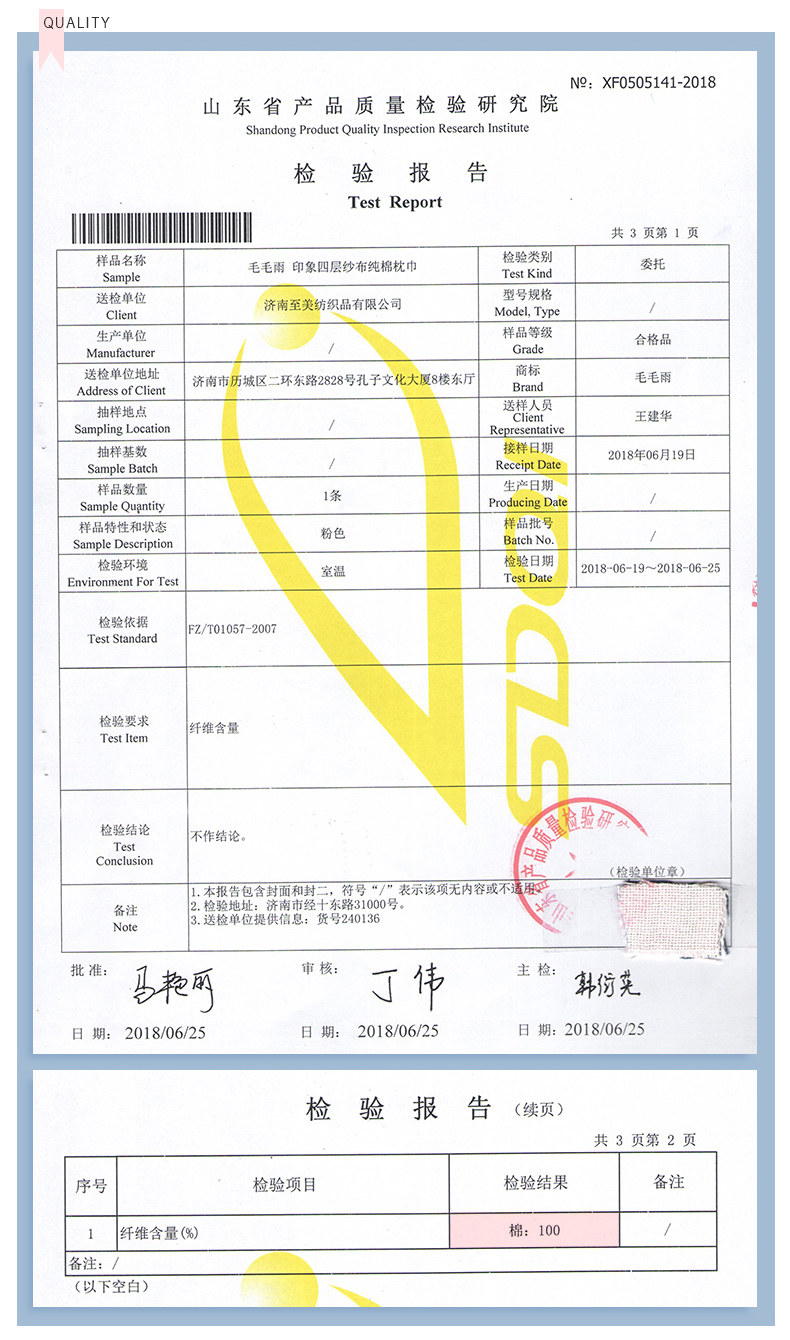 QUALITY
№: XF0505141-2018
山东省产品质量检验研究院
Shandong Product Quality Inspection Research Institute
检验报告
Test Report
共 3 页第 1 页
样品名称 Sample 毛毛雨 印象四层纱布纯棉枕巾 检验类别 Test Kind 委托
送检单位 Client 济南至美纺织品有限公司 型号规格 Model, Type /
生产单位 Manufacturer / 样品等级 Grade 合格品
送检单位地址 Address of Client 济南市历城区二环东路2828号孔子文化大厦8楼东厅 商标 Brand 毛毛雨
抽样地点 Sampling Location / 送样人员 Client Representative 王建华
抽样基数 Sample Batch / 接样日期 Receipt Date 2018年06月19日
样品数量 Sample Quantity 1条 生产日期 Producing Date /
样品特性和状态 Sample Description 粉色 样品批号 Batch No. /
检验环境 Environment For Test 室温 检验日期 Test Date 2018-06-19～2018-06-25
检验依据 Test Standard FZ/T01057-2007
检验要求 Test Item 纤维含量
检验结论 Test Conclusion 不作结论。
（检验单位章）
备注 Note
1.本报告包含封面和封二，符号“/”表示该项无内容或不适用。
2.检验地址：济南市经十东路31000号。
3.送检单位提供信息：货号240136
SDQI
山东省产品质量检验研究
批 准： 马艳丽 审 核： 丁伟 主 检：
日 期： 2018/06/25 日 期： 2018/06/25 日 期：2018/06/25
检验报告（续页）
共 3 页第 2 页
序号 检验项目 检验结果 备注
1 纤维含量(%) 棉：100 /
备注：/
（以下空白）